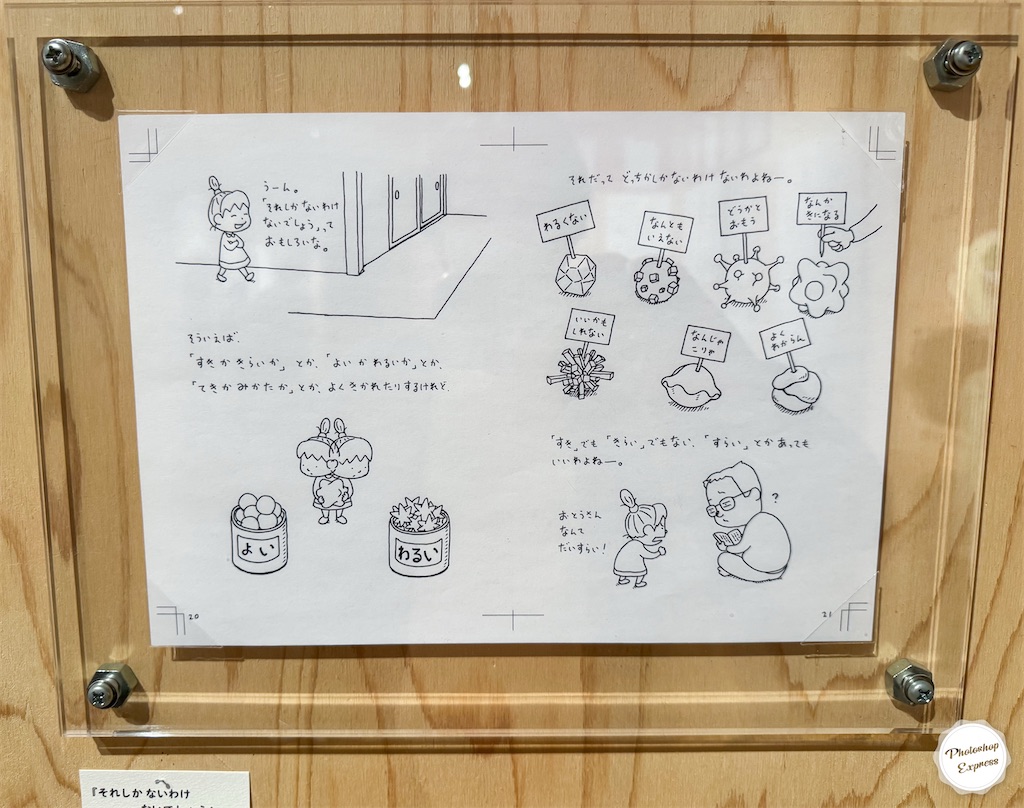 うーん。
「それしか ないわけ
ないでしょう」って
おもしろいな。
そういえば、
「すき か きらいか」 とか、「よい か わるいか」とか、
「てきか みかたか」とか、よく きかれたりするけれど、
よい
わるい
20
それだって どっちかしか ないわけ ないわよねー。
わるくない
なんとも
いえない
どうかと
おもう
なんか
きになる
いいかも
しれない
なんじゃ
こりゃ
よく
わからん
「すき」でも「きらい」でもない、「すらい」とかあっても
いいわよねー。
おとうさん
なんて
だいすらい!
?
21
『それしか ないわけ
ないでしょう』
Photoshop
Express